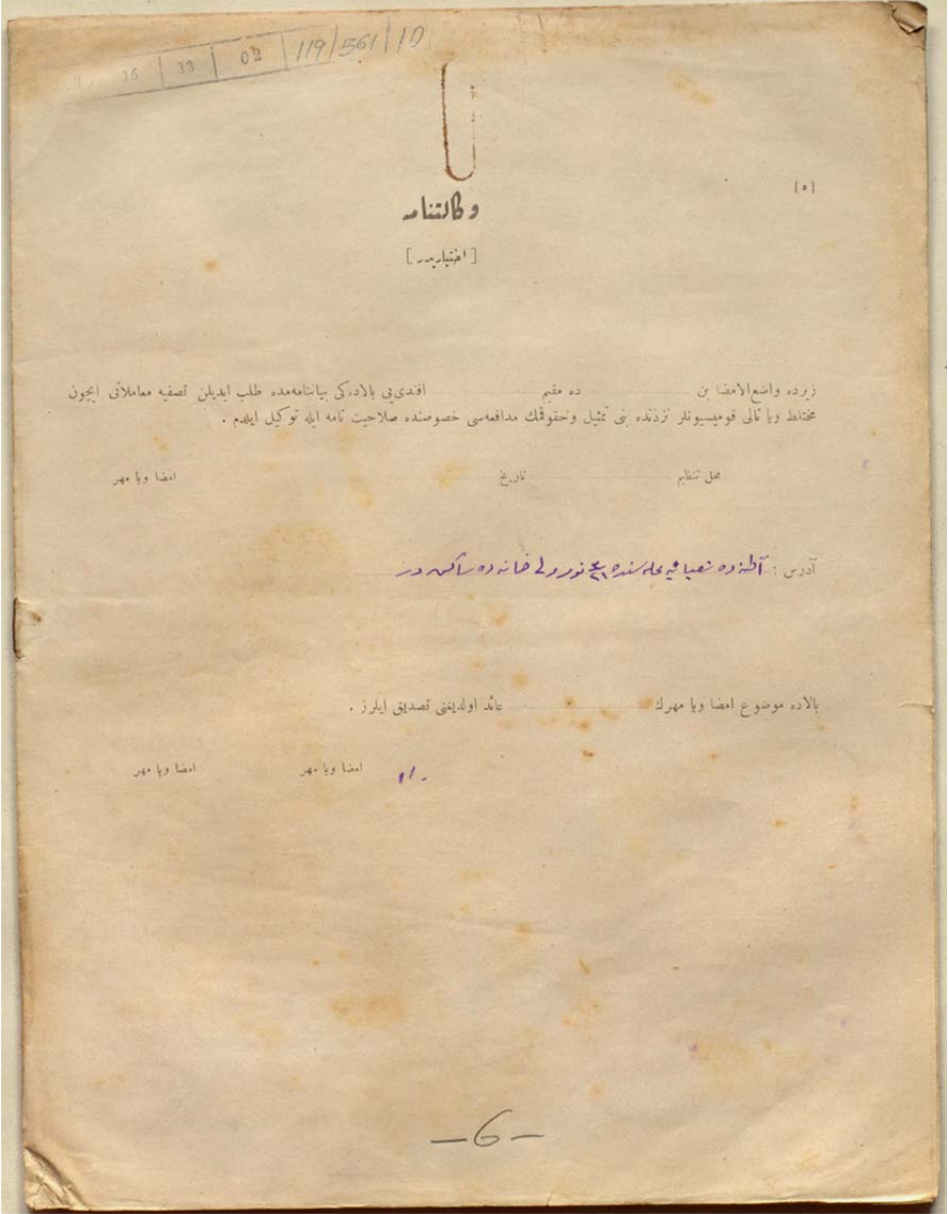 16 | 13 | 02 | 119/561/10
[٥]
وكالتنامه
[اختياريدر]
زيرده واضع الامضا بن ده مقيم افندی‌يی بالاده‌كی بياننامه‌مده طلب ايديلن تصفيه معاملاتی ايچون
مختلط ويا تالی قوميسيونلر نزدنده بنی تمثيل وحقوقمك مدافعه‌سی خصوصنده صلاحيت نامه ايله توكيل ايلدم .
محل تنظيم تاريخ امضا ويا مهر
آدرس : آطنه ده محله سنده نومرولی خانه ده ساكن در
بالاده موضوع امضا ويا مهرك عائد اولديغنی تصديق ايلرز .
امضا ويا مهر امضا ويا مهر
—6—